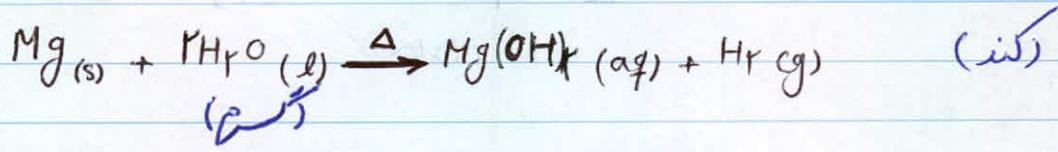 Mg (s) + ۲H۲O (l) Δ→ Mg(OH)۲ (aq) + H۲ (g) (کند)
(گرم)